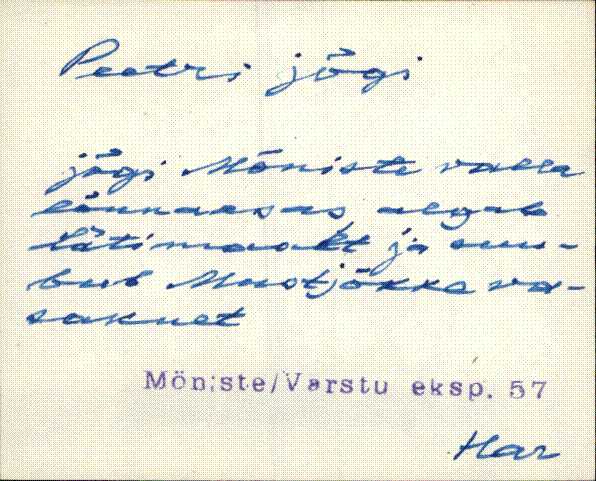 Peetri jõgi
jõgi Mõniste valla
lõunaosas algab
Lätimaalt ja suu-
bub Mustjõkke va-
sakult
Mõniste/Varstu eksp. 57
Har